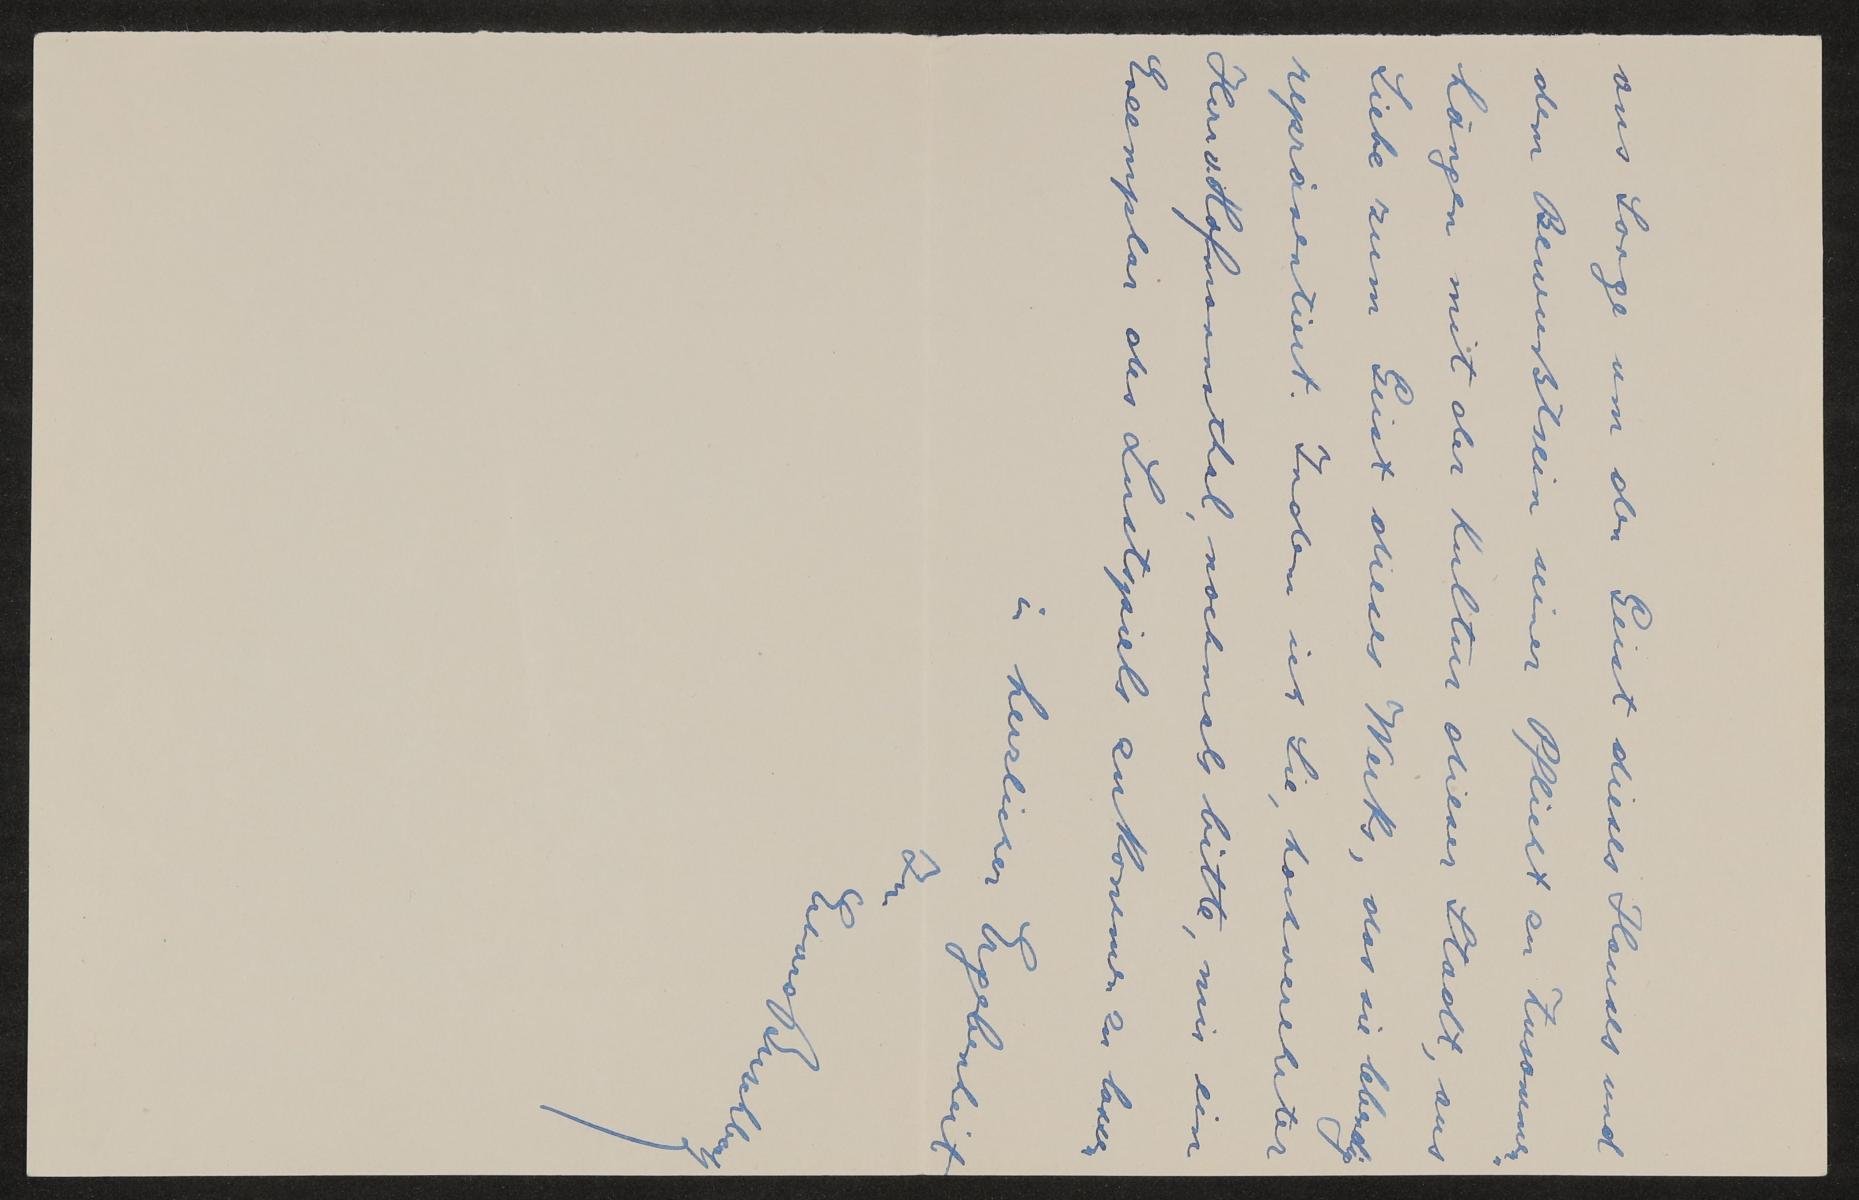 aus Sorge um den Geist dieses Hauses und
dem Bewußtsein seiner Pflicht zu Zusammen-
hängen mit der Kultur dieser Stadt, aus
Liebe zum Geist dieses Werks, das sie lebendig
repräsentiert. Indem ich Sie, hochverehrter
Herr v. Hofmannsthal, nochmals bitte, mir ein
Exemplar des Lustspiels zukommen zu lassen
in herzlicher Ergebenheit
Ihr